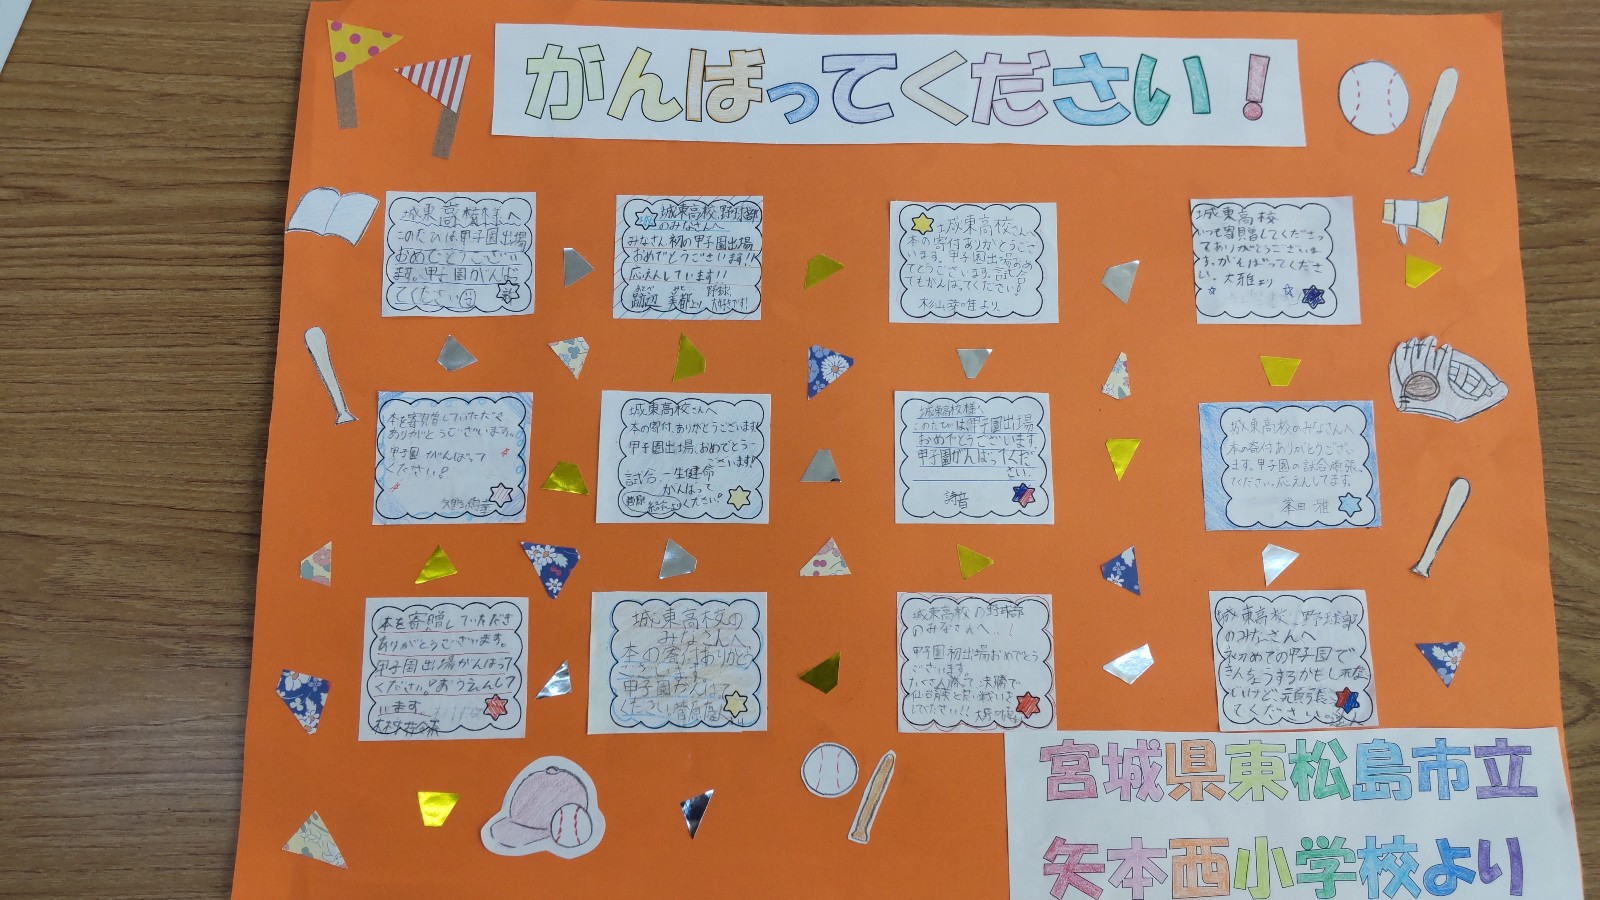 がんばってください！
城東高校様へ
このたびは、甲子園出場
おめでとうござい
ます。甲子園がんば
てください
城東高校、野球部
のみなさんへ
みなさん、初の甲子園出場
おめでとうございます!!
応えんしています!!
野球、
大好きです!
城東高校さんへ
本の寄付ありがとうござ
います。甲子園出場おめ
でとうございます。試合
でもがんばってください!
杉山 より
城東高校
いつも寄贈してくださっ
てありがとうございま
す。がんばってくださ
い。大雅より
本を寄贈していただき
ありがとうございます。
甲子園がんばって
ください!
城東高校さんへ
本の寄付、ありがとうございます!
甲子園出場、おめでとう
ございます!
試合、一生健命
がんばって
ください!
城東高校様へ
このたびは、甲子園出場
おめでとうございます。
甲子園がんばってくだ
さい。
詩音
城東高校のみなさんへ
本の寄付ありがとうござい
ます。甲子園の試合頑張っ
てください。応えんしてます。
峯田 雅
本を寄贈していただき
ありがとうございます。
甲子園出場がんばって
ください!おうえんして
います。
城東高校の
みなさんへ
本の寄付ありがと
うございます。
甲子園がんばって
ください
城東高校の野球部
のみなさんへ!
甲子園初出場おめでとう
ございます。
たくさん勝って決勝で
仙台育英と
してください!!
城東高校、野球部
のみなさんへ
初めての甲子園で
きんちょうするかもしれな
いけど、元気に
てください
宮城県東松島市立
矢本西小学校より